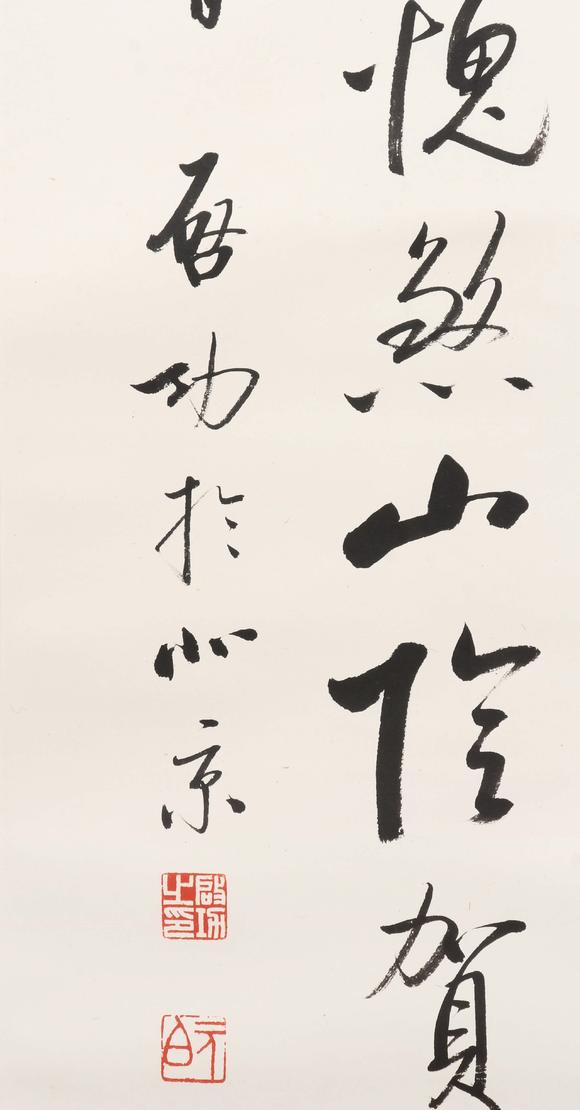 愧煞山陰賀
啓功於北京
啟功之印
元白